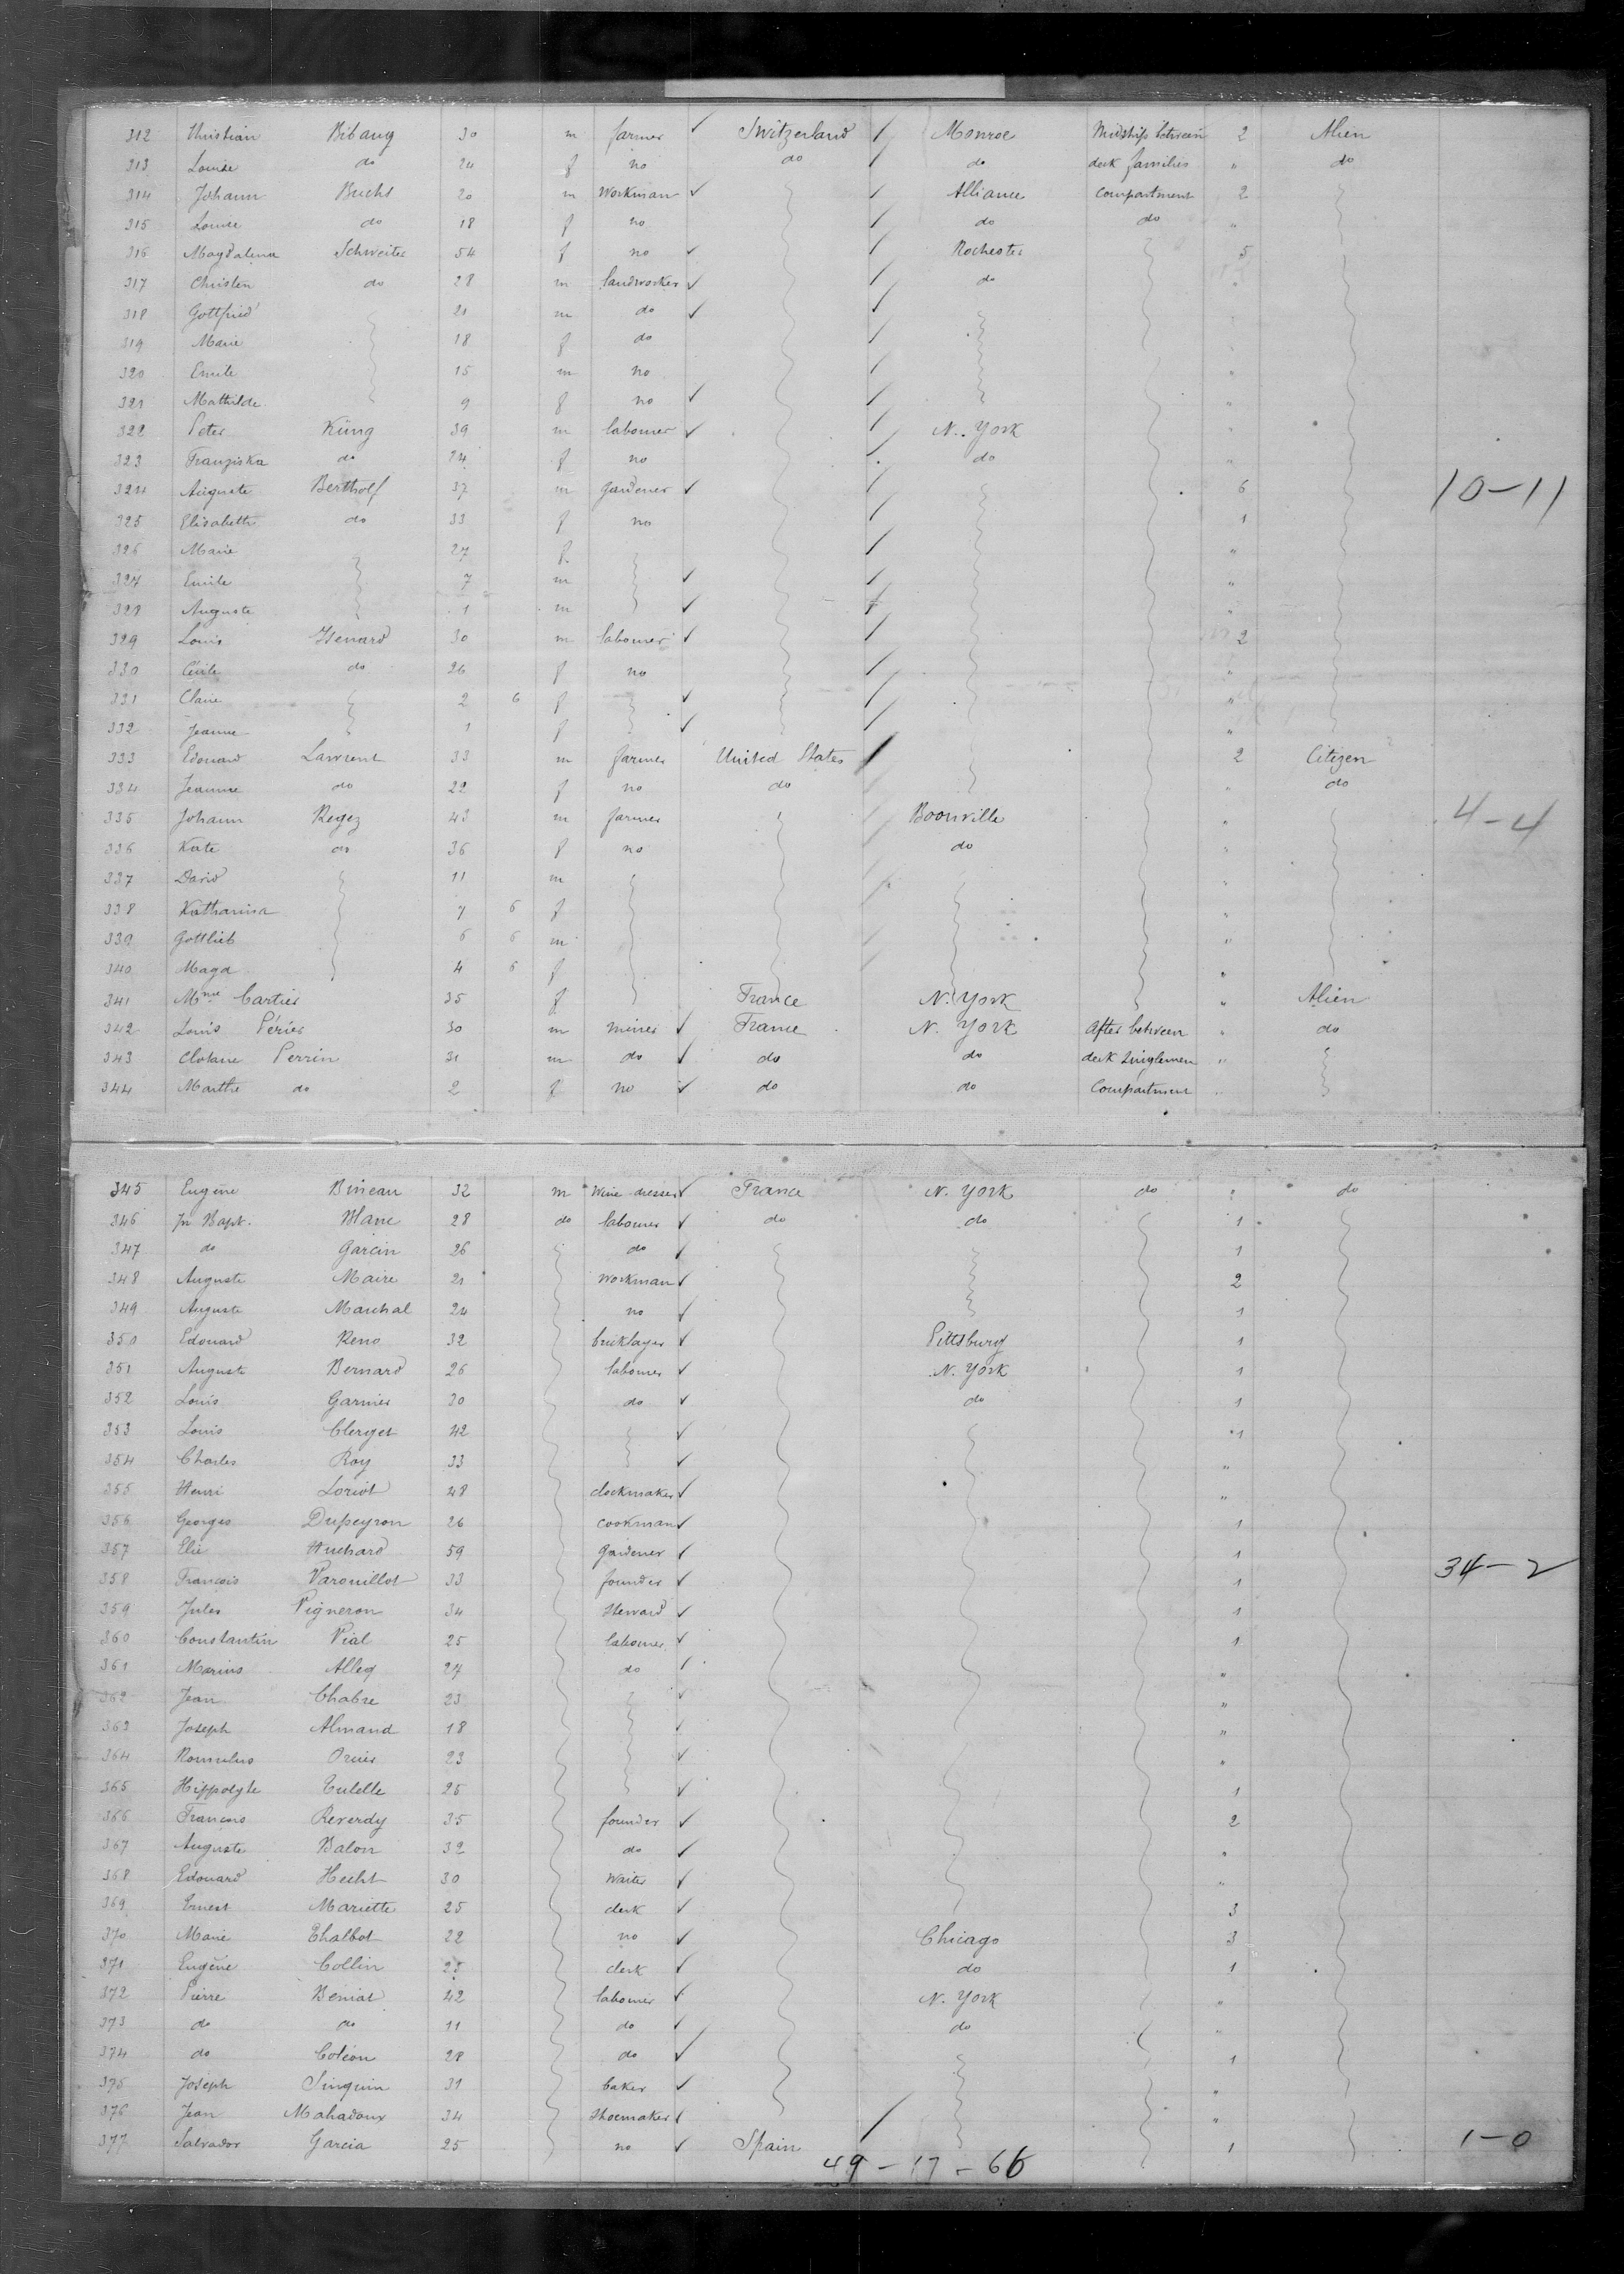 312 Christian Bibaug 30 m farmer ✓ Switzerland / Monroe Midship between 2 Alien
313 Louise do 24 f no do / do deck families " do
314 Johann Buchs 20 m Workman ✓ / Alliance compartment 2
315 Louise do 18 f no / do do "
316 Magdalena Schweiter 54 f no ✓ / Rochester 5
317 Christen do 28 m landworker ✓ / do "
318 Gottfried 21 m do ✓ /
319 Marie 18 f do / "
320 Emile 15 m no / "
321 Mathilde 9 f no ✓ / "
322 Peter Küng 39 m labourer ✓ / N. York "
323 Franziska do 24 f no / do "
324 Auguste Bertholf 37 m gardener ✓ / 6 10-11
325 Elisabeth do 33 f no / 1
326 Marie 27 f / "
327 Emile 7 m ✓ / "
328 Auguste 1 m ✓ / "
329 Louis Isenard 30 m labourer ✓ / 2
330 Cécile do 26 f no / "
331 Claire 2 6 f ✓ / "
332 Jeanne 1 f ✓ / "
333 Edouard Laurent 33 m farmer United States / 2 Citizen
334 Jeanne do 22 f no do " do
335 Johann Regez 43 m farmer Boonville " 4-4
336 Kate do 36 f no do "
337 David 11 m "
338 Katharina 7 6 f "
339 Gottlieb 6 6 m "
340 Magd 4 6 f "
341 Mme Cartier 35 f France N. York " Alien
342 Louis Périer 30 m miner ✓ France N. York After between " do
343 Clotaire Perrin 31 m do ✓ do do deck Singlemen "
344 Marthe do 2 f no ✓ do do Compartment "
345 Eugène Bineau 32 m Wine dresser ✓ France N. York do " do
346 Jn Bapt. Blanc 28 do labourer ✓ do do 1
347 do Garcin 26 do ✓ 1
348 Auguste Maire 21 Workman ✓ 2
349 Auguste Marchal 24 no ✓ 1
350 Edouard Reno 32 bricklayer ✓ Pittsburg 1
351 Auguste Bernard 26 labourer ✓ N. York 1
352 Louis Garnier 30 do ✓ do 1
353 Louis Clerget 42 ✓ 1
354 Charles Roy 33 ✓ "
355 Henri Loriot 48 clockmaker ✓ "
356 Georges Dupeyron 26 cookman ✓ 1
357 Elie Huchard 59 gardener ✓ 1 34-2
358 François Varouillot 33 founder ✓ 1
359 Jules Pigneron 34 Steward ✓ 1
360 Constantin Vial 25 labourer ✓ 1
361 Marius Alleg 27 do ✓ "
362 Jean Chabre 23 ✓ "
363 Joseph Almand 18 ✓ "
364 Romulus 23 ✓ "
365 Hippolyte Tulelle 25 ✓ 1
366 François Reverdy 35 founder ✓ 2
367 Auguste Balon 32 do ✓ "
368 Edouard Hecht 30 Waiter ✓ "
369 Ernest Mariette 25 clerk ✓ 3
370 Marie Chalbot 22 no ✓ Chicago 3
371 Eugène Collin 25 clerk ✓ do 1
372 Pierre Beniat 42 labourer ✓ N. York "
373 do do 11 do ✓ do "
374 do Coléon 28 do ✓ 1
375 Joseph Sinquin 31 baker ✓ "
376 Jean Mahadoux 34 Shoemaker ✓ "
377 Salvador Garcia 25 no ✓ Spain / 1 1-0
49-17-66